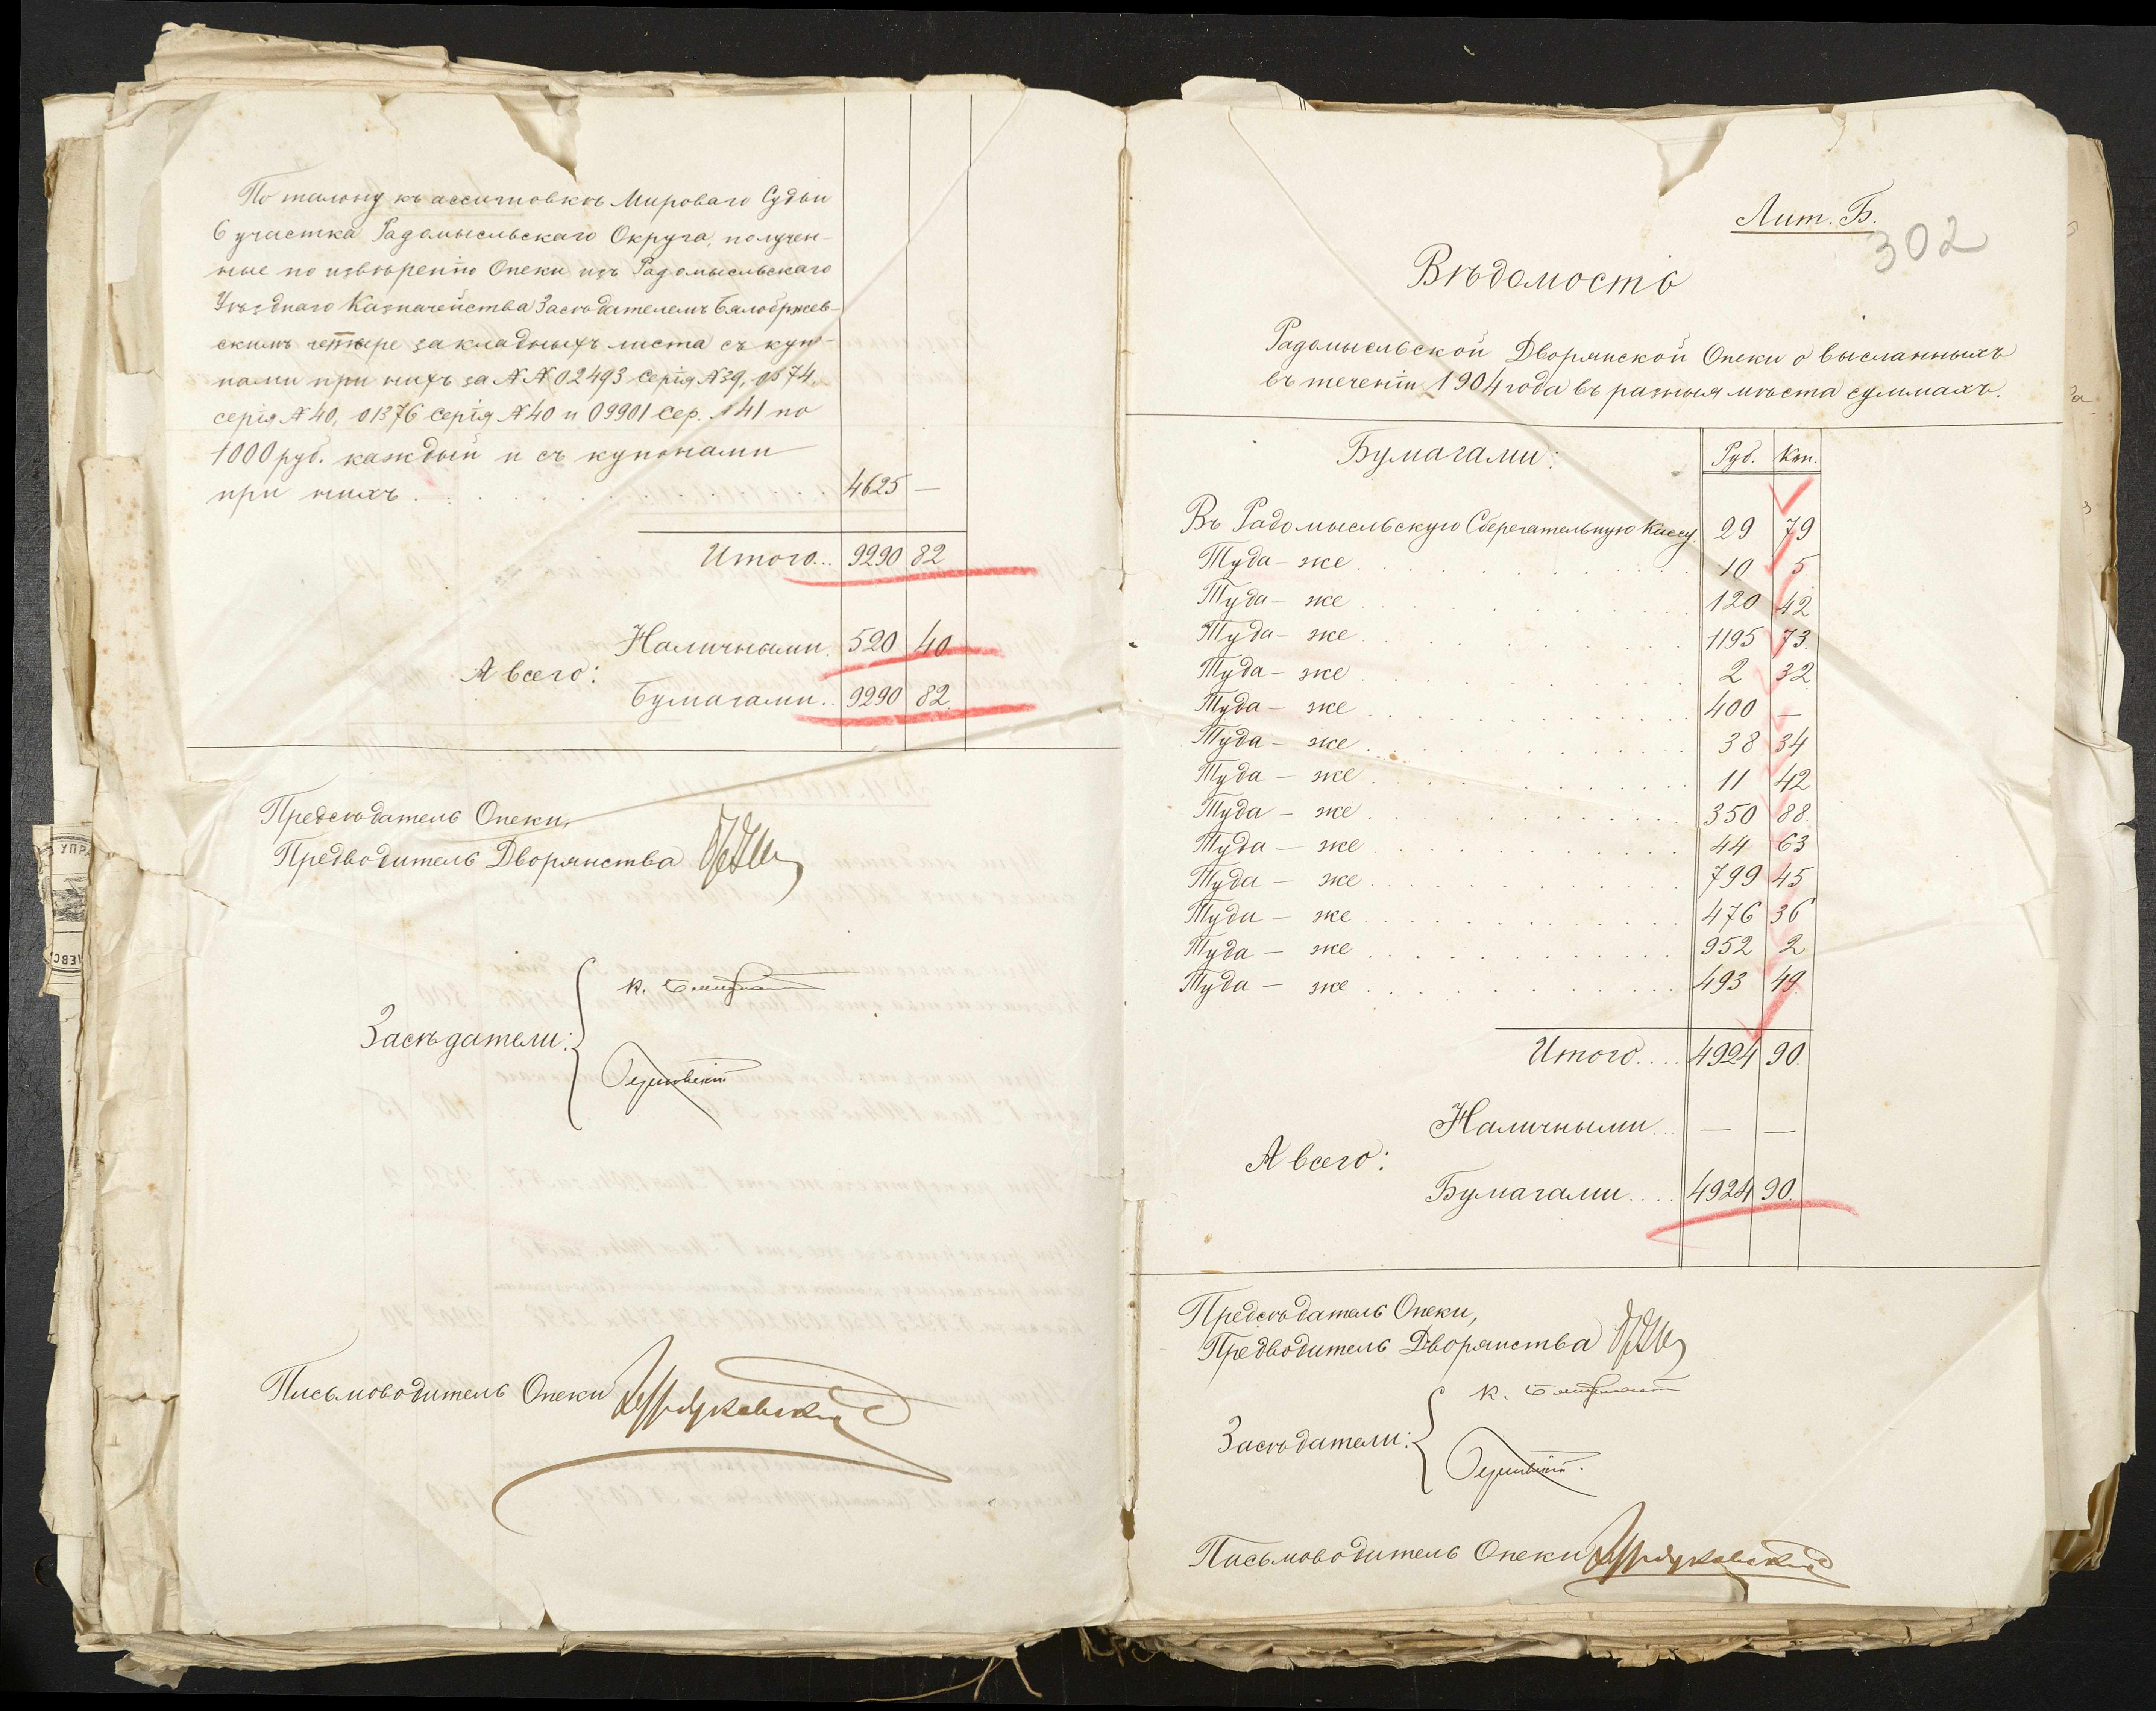 По талону къ ассигновкѣ Мироваго Судьи
6 участка Радомысльскаго Округа, получен-
ные по Опеки изъ Радомысльскаго
Уѣзднаго Казначейства Засѣдателемъ Бялобржев-
скимъ четыре закладныхъ листа съ купо-
нами при нихъ за №№ 02493 серія №39,
серія №40, 01376 серія №40 и 09901 сер. 141 по
1000 руб. каждый и съ купонами
при нихъ . . . . . . . . . . . . 4625 —
Итого... 9290 82
Наличными. 520 40
А всего:
Бумагами.. 9290 82.
Предсѣдатель Опеки,
Предводитель Дворянства
Засѣдатели:
К.
Письмоводитель Опеки
Лит. Б.
302
Вѣдомость
Радомысльской Дворянской Опеки о высланныхъ
въ теченіи 1904 года въ разныя мѣста суммахъ.
Бумагами: Руб. Коп.
Въ Радомысльскую Сберегательную Кассу. 29 79
Туда-же . . . . . . . . . . . 10 5
Туда-же . . . . . . . . . . . 120 42
Туда-же . . . . . . . . . . . 1195 73.
Туда-же . . . . . . . . . . . 2 32
Туда-же . . . . . . . . . . . 400 —
Туда-же . . . . . . . . . . . 38 34
Туда-же . . . . . . . . . . . 11 42
Туда-же . . . . . . . . . . . 350 88.
Туда-же . . . . . . . . . . . 44 63
Туда-же . . . . . . . . . . . 799 45
Туда-же . . . . . . . . . . . 476 36
Туда-же . . . . . . . . . . . 952 2
Туда-же . . . . . . . . . . . 493 49.
Итого.... 4924 90.
Наличными... — —
А всего:
Бумагами.... 4924 90.
Предсѣдатель Опеки,
Предводитель Дворянства
К.
Засѣдатели:
Письмоводитель Опеки